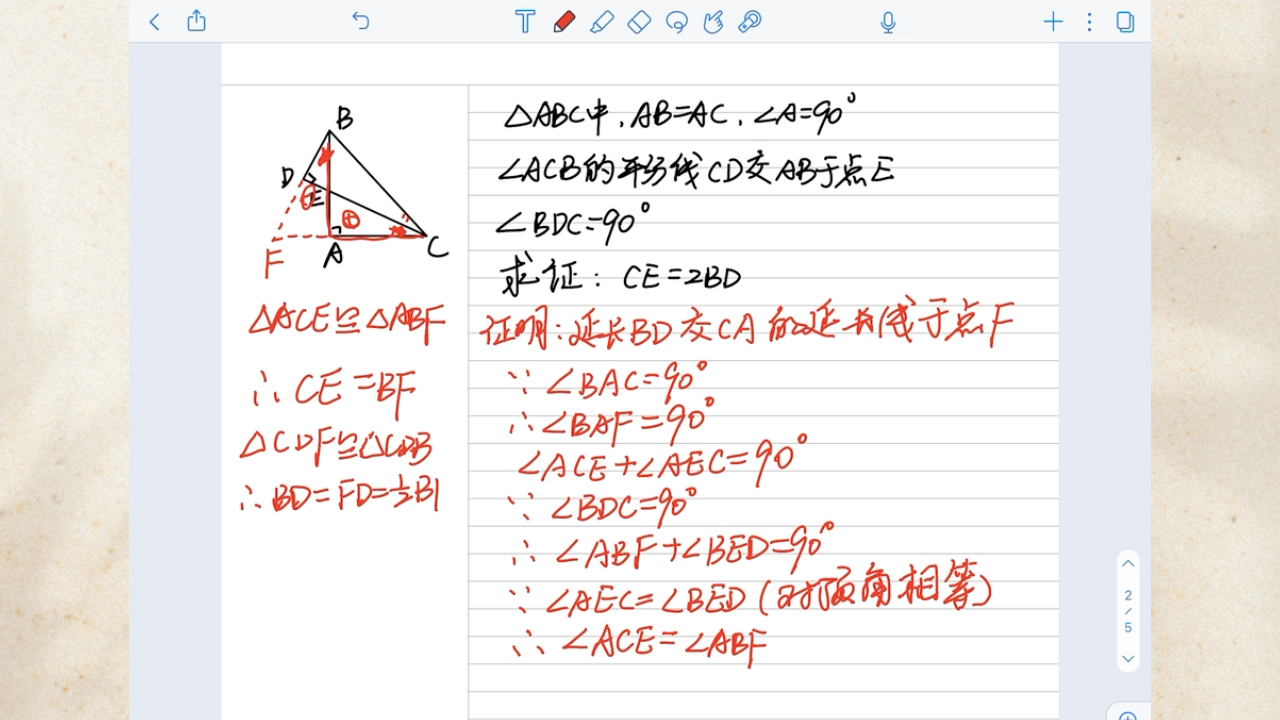 △ABC中,AB=AC,∠A=90°
∠ACB的平分线CD交AB于点E
∠BDC=90°
求证:CE=2BD
B
D
E
A
C
F
△ACE≌△ABF
∴CE=BF
△CDF≌△CDB
∴BD=FD=½B
证明:延长BD交CA的延长线于点F
∵∠BAC=90°
∴∠BAF=90°
∠ACE+∠AEC=90°
∵∠BDC=90°
∴∠ABF+∠BED=90°
∵∠AEC=∠BED(对顶角相等)
∴∠ACE=∠ABF
2
/
5